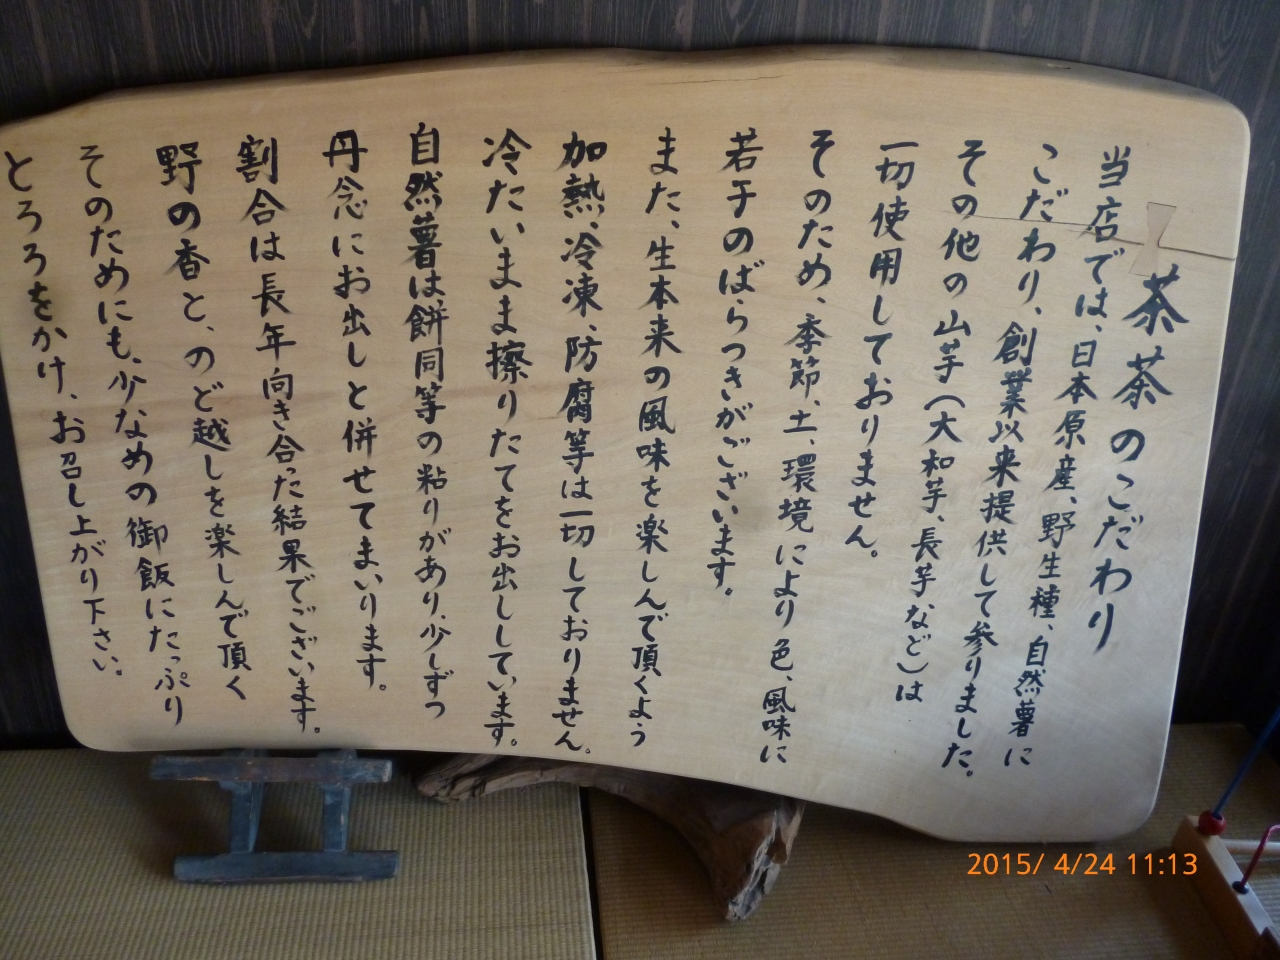 茶茶のこだわり
当店では、日本原産、野生種、自然薯に
こだわり、創業以来提供して参りました。
その他の山芋(大和芋、長芋など)は
一切使用しておりません。
そのため、季節、土、環境により色、風味に
若干のばらつきがございます。
また、生本来の風味を楽しんで頂くよう
加熱、冷凍、防腐等は一切しておりません。
冷たいまま擦りたてをお出ししています。
自然薯は餅同等の粘りがあり、少しずつ
丹念にお出しと併せてまいります。
割合は長年向き合った結果でございます。
野の香と、のど越しを楽しんで頂く
そのためにも、少なめの御飯にたっぷり
とろろをかけ、お召し上がり下さい。
2015/ 4/24 11:13